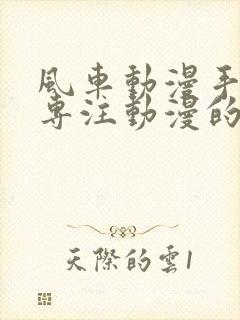 風車動漫手
專注動漫的
天際的雲1